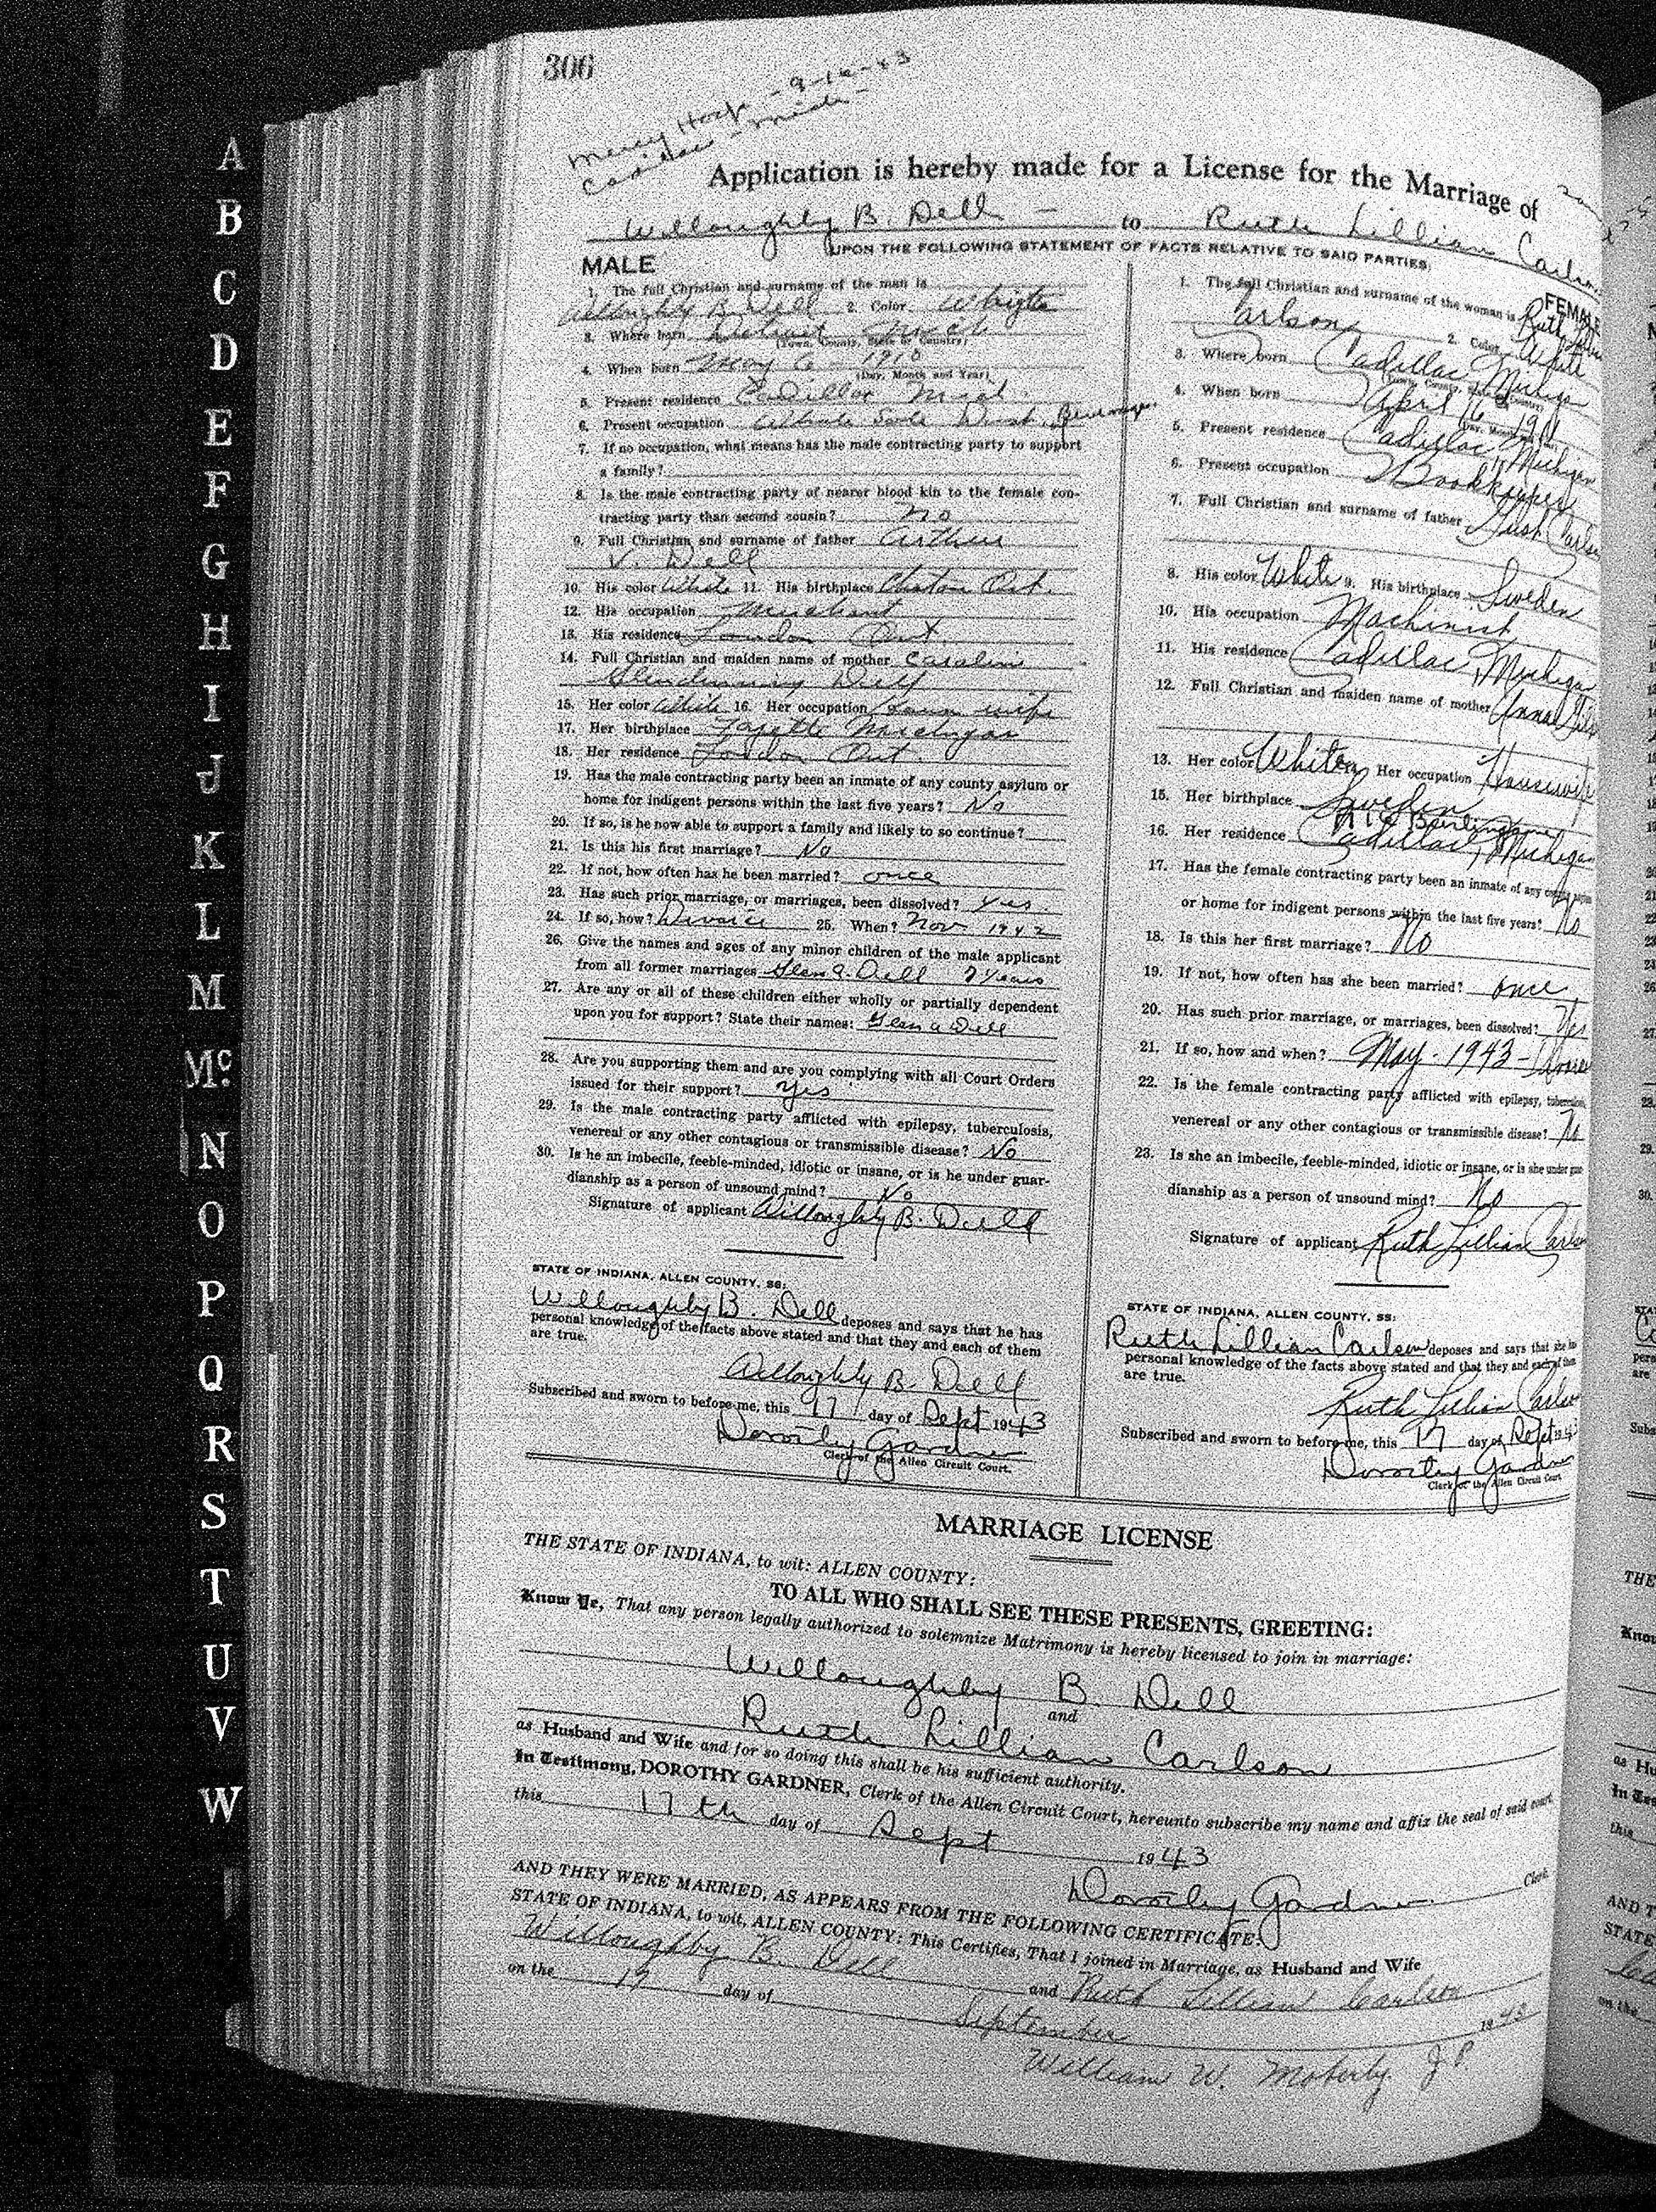 306
Mercy Hosp - 9-16-43
Cadillac - Mich -
Application is hereby made for a License for the Marriage of
Willoughby B. Dell - to Ruth Lillian Carlson
UPON THE FOLLOWING STATEMENT OF FACTS RELATIVE TO SAID PARTIES;
MALE
1. The full Christian and surname of the man is
Willoughby B. Dell 2. Color White
3. Where born Detroit Mich
(Town, County, State or Country)
4. When born May 6 - 1910
(Day, Month and Year)
5. Present residence Cadillac Mich.
6. Present occupation
7. If no occupation, what means has the male contracting party to support
a family?
8. Is the male contracting party of nearer blood kin to the female con-
tracting party than second cousin? no
9. Full Christian and surname of father Arthur
V. Dell
10. His color White 11. His birthplace Ont.
12. His occupation Merchant
13. His residence London Ont.
14. Full Christian and maiden name of mother Caroline
Glendinning Dell
15. Her color White 16. Her occupation House wife
17. Her birthplace Michigan
18. Her residence London Ont.
19. Has the male contracting party been an inmate of any county asylum or
home for indigent persons within the last five years? No
20. If so, is he now able to support a family and likely to so continue?
21. Is this his first marriage? No
22. If not, how often has he been married? once
23. Has such prior marriage, or marriages, been dissolved? Yes.
24. If so, how? Divorce 25. When? Nov. 1942
26. Give the names and ages of any minor children of the male applicant
from all former marriages Glen A. Dell 7 years
27. Are any or all of these children either wholly or partially dependent
upon you for support? State their names: Glen A Dell
28. Are you supporting them and are you complying with all Court Orders
issued for their support? yes
29. Is the male contracting party afflicted with epilepsy, tuberculosis,
venereal or any other contagious or transmissible disease? No
30. Is he an imbecile, feeble-minded, idiotic or insane, or is he under guar-
dianship as a person of unsound mind? No
Signature of applicant Willoughby B. Dell
STATE OF INDIANA, ALLEN COUNTY, SS:
Willoughby B. Dell deposes and says that he has
personal knowledge of the facts above stated and that they and each of them
are true.
Willoughby B. Dell
Subscribed and sworn to before me, this 17 day of Sept 1943
Dorothy Gardner
Clerk of the Allen Circuit Court.
FEMALE
1. The full Christian and surname of the woman is Ruth Lillian
Carlson 2. Color White
3. Where born Cadillac Michigan
(Town, County, State or Country)
4. When born April 16, 1911
(Day, Month and Year)
5. Present residence Cadillac, Michigan
6. Present occupation Bookkeeper
7. Full Christian and surname of father Gust Carlson
8. His color White 9. His birthplace Sweden
10. His occupation Machinist
11. His residence Cadillac, Michigan
12. Full Christian and maiden name of mother Anna
13. Her color White 14. Her occupation Housewife
15. Her birthplace Sweden
16. Her residence Cadillac, Michigan
17. Has the female contracting party been an inmate of any county asylum
or home for indigent persons within the last five years? No
18. Is this her first marriage? No
19. If not, how often has she been married? once
20. Has such prior marriage, or marriages, been dissolved? Yes
21. If so, how and when? May - 1943 - Divorce
22. Is the female contracting party afflicted with epilepsy, tuberculosis,
venereal or any other contagious or transmissible disease? No
23. Is she an imbecile, feeble-minded, idiotic or insane, or is she under guar-
dianship as a person of unsound mind? No
Signature of applicant Ruth Lillian Carlson
STATE OF INDIANA, ALLEN COUNTY, SS:
Ruth Lillian Carlson deposes and says that she has
personal knowledge of the facts above stated and that they and each of them
are true.
Ruth Lillian Carlson
Subscribed and sworn to before me, this 17 day of Sept 1943
Dorothy Gardner
Clerk of the Allen Circuit Court
MARRIAGE LICENSE
THE STATE OF INDIANA, to wit: ALLEN COUNTY:
TO ALL WHO SHALL SEE THESE PRESENTS, GREETING:
Know Ye, That any person legally authorized to solemnize Matrimony is hereby licensed to join in marriage:
Willoughby B. Dell
and
Ruth Lillian Carlson
as Husband and Wife and for so doing this shall be his sufficient authority.
In Testimony, DOROTHY GARDNER, Clerk of the Allen Circuit Court, hereunto subscribe my name and affix the seal of said court
this 17th day of Sept 1943
Dorothy Gardner Clerk.
AND THEY WERE MARRIED, AS APPEARS FROM THE FOLLOWING CERTIFICATE:
STATE OF INDIANA, to wit, ALLEN COUNTY: This Certifies, That I joined in Marriage, as Husband and Wife
Willoughby B. Dell and Ruth Lillian Carlson
on the 17 day of September 1943
William W. Moberly J.P.
A
B
C
D
E
F
G
H
I
J
K
L
M
Mc.
N
O
P
Q
R
S
T
U
V
W